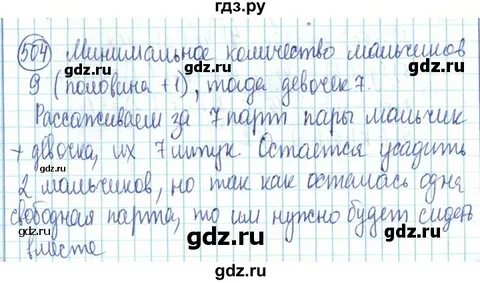 гдз.ру
504 Минимальное количество мальчиков
9 (половина +1), тогда девочек 7.
Рассаживаем за 7 парт пары мальчик
+ девочка, их 7 штук. Остается усадить
2 мальчиков, но так как осталась одна
свободная парта, то им нужно будет сидеть
вместе
gdz.ru
gdz.ru
gdz.ru
gdz.ru
gdz.ru
gdz.ru
gdz.ru